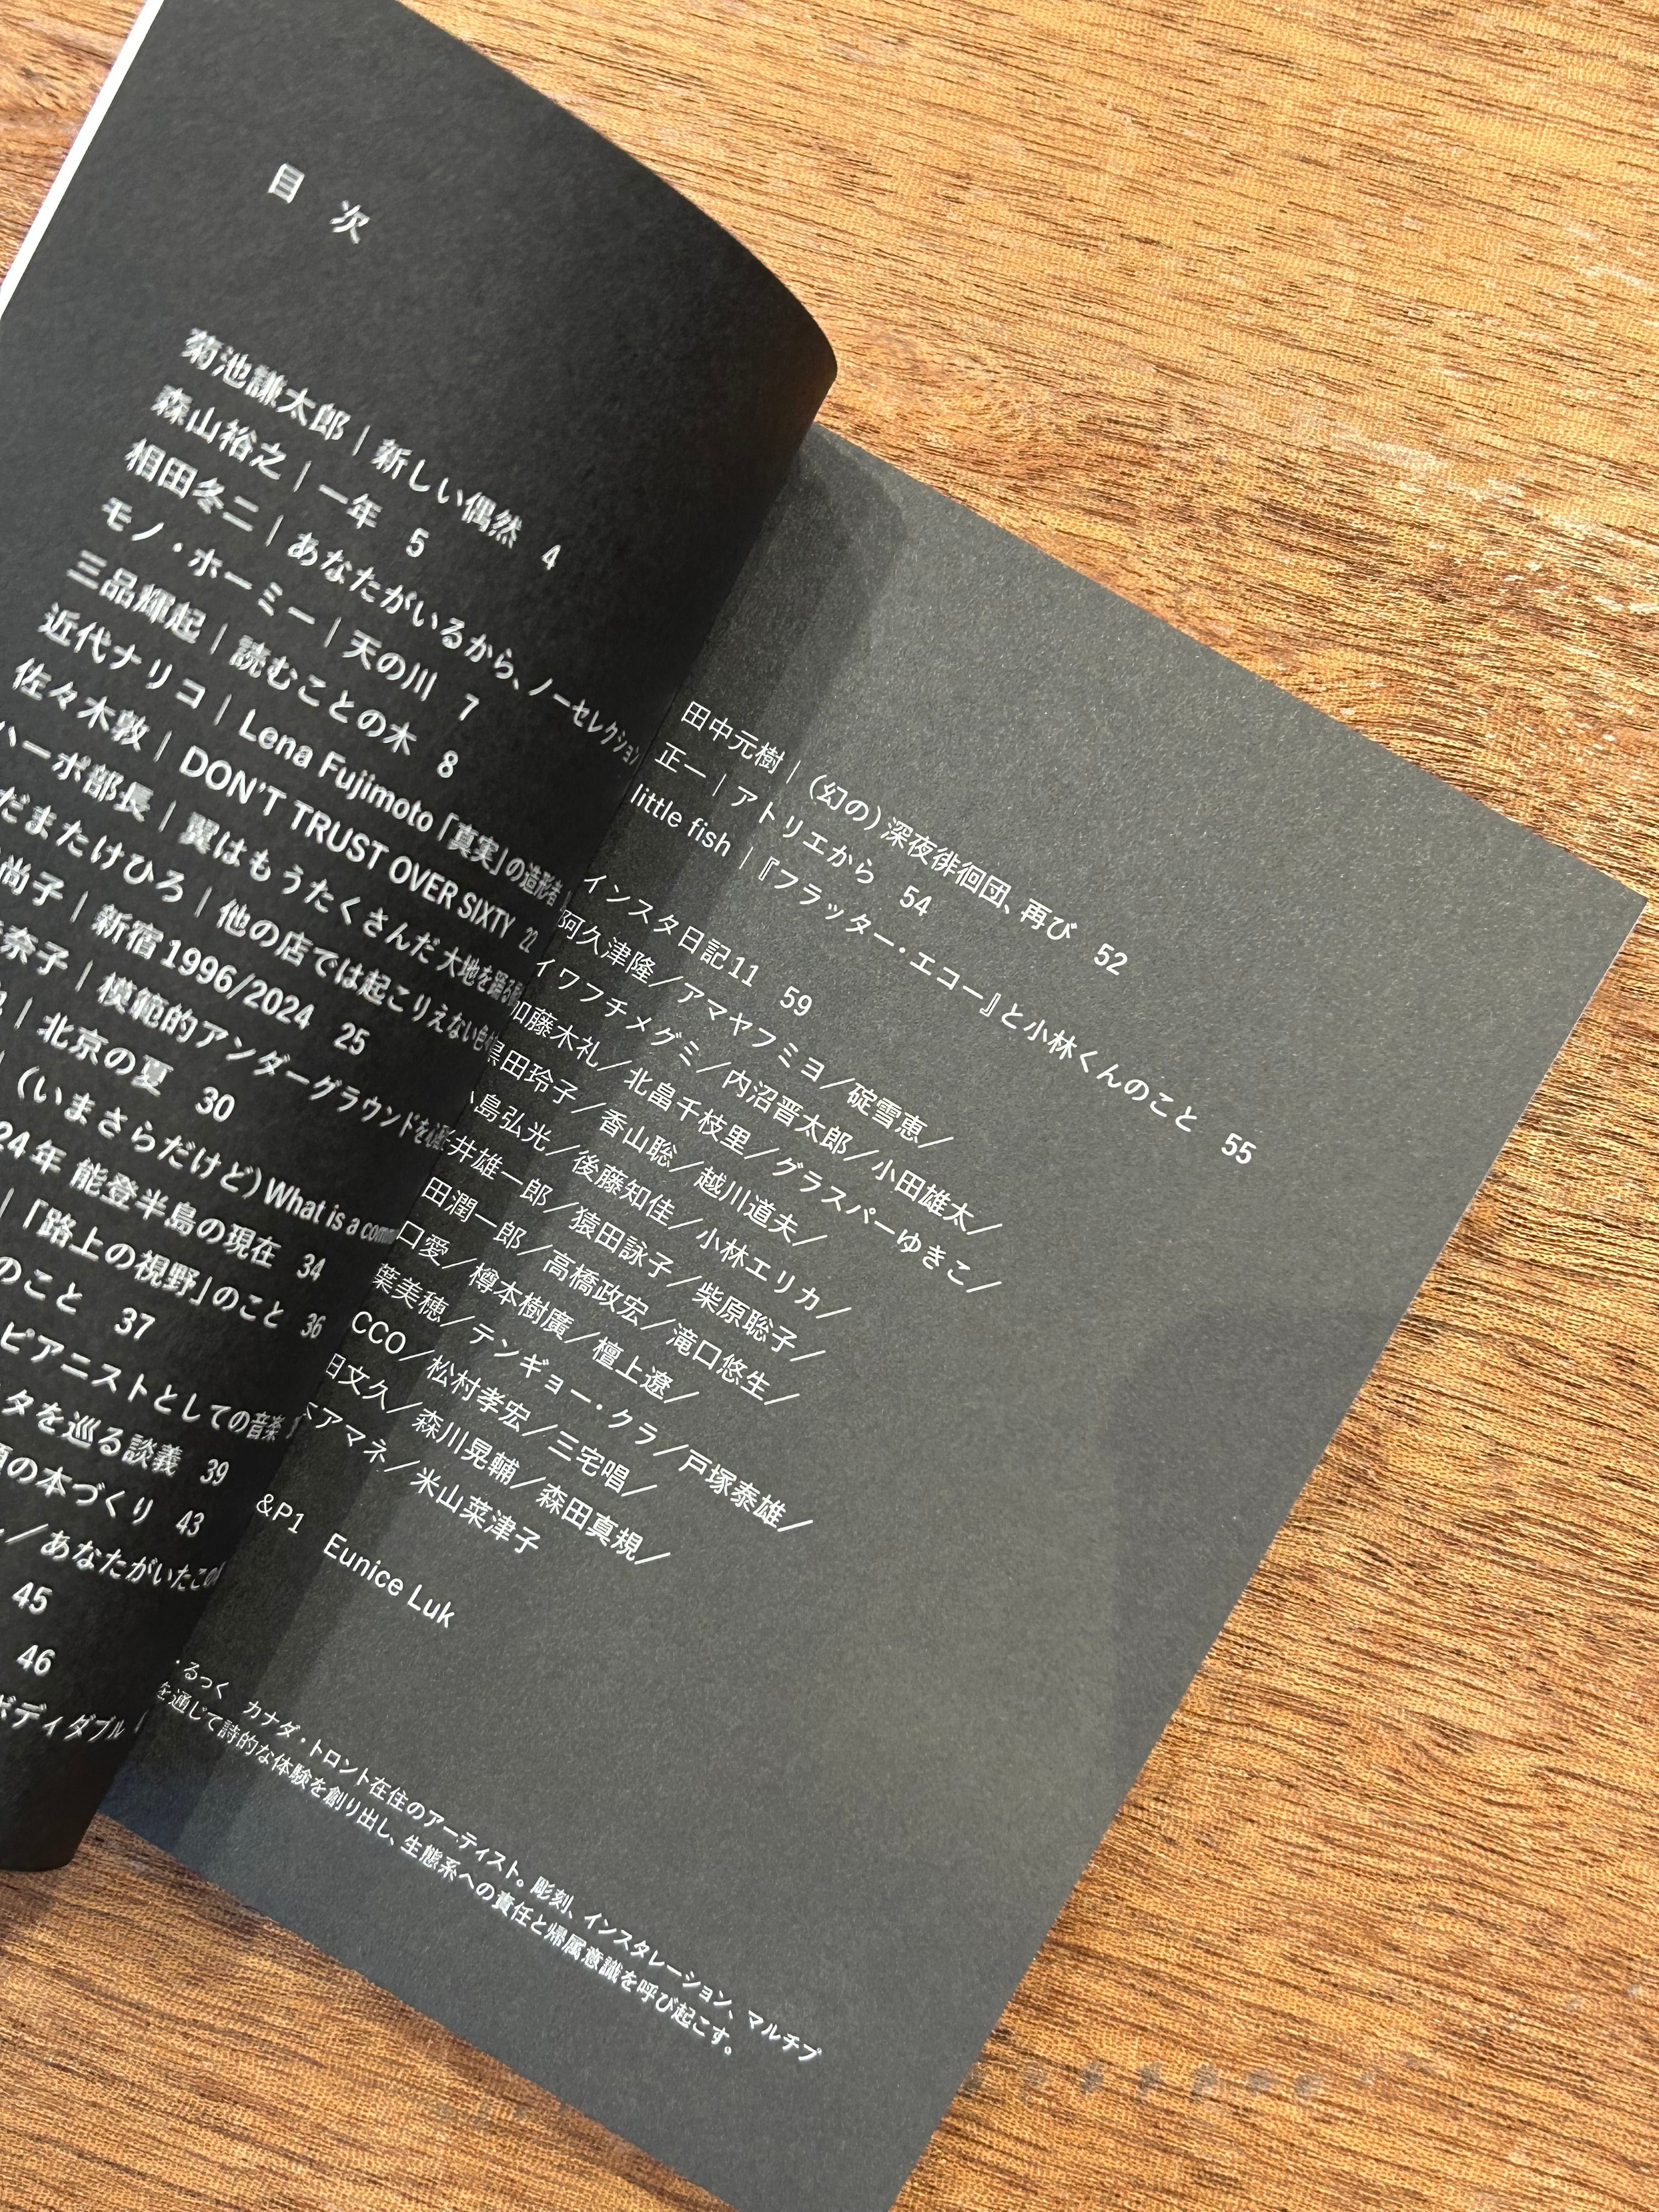 目次
菊池謙太郎｜新しい偶然 4
森山裕之｜一年 5
相田冬二｜あなたがいるから、ノーセレクション
モノ・ホーミー｜天の川 7
三品輝起｜読むことの木 8
近代ナリコ｜Lena Fujimoto「真実」の造形者
佐々木敦｜DON'T TRUST OVER SIXTY 22
ハーポ部長｜翼はもうたくさんだ 大地を
だまたけひろ｜他の店では起こりえない
尚子｜新宿1996/2024 25
奈子｜模範的アンダーグラウンドを
｜北京の夏 30
（いまさらだけど）What is a
24年 能登半島の現在 34
｜「路上の視野」のこと 36
のこと 37
ピアニストとしての音楽
タを巡る談義 39
の本づくり 43
／あなたがいた
45
46
ボディダブル
田中元樹｜（幻の）深夜徘徊団、再び 52
正一｜アトリエから 54
little fish｜『フラッター・エコー』と小林くんのこと 55
インスタ日記11 59
阿久津隆／アマヤフミヨ／碇雪恵／
イワフチメグミ／内沼晋太郎／小田雄太／
加藤木礼／北畠千枝里／グラスパーゆきこ／
黒田玲子／香山聡／越川道夫／
島弘光／後藤知佳／小林エリカ／
井雄一郎／猿田詠子／柴原聡子／
田潤一郎／高橋政宏／滝口悠生／
口愛／樽本樹廣／檀上遼／
葉美穂／テンギョー・クラ／戸塚泰雄／
CCO／松村孝宏／三宅唱／
田文久／森川晃輔／森田真規／
アマネ／米山菜津子
&P1 Eunice Luk
・るっく カナダ・トロント在住のアーティスト。彫刻、インスタレーション、マルチプ
を通じて詩的な体験を創り出し、生態系への責任と帰属意識を呼び起こす。